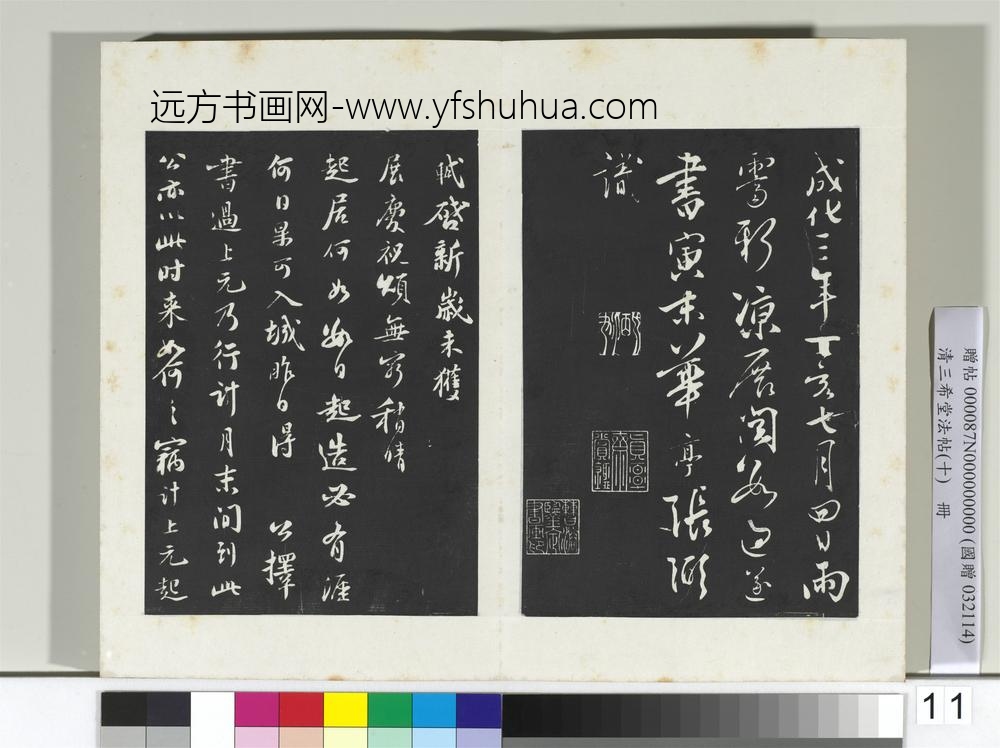 远方书画网-www.yfshuhua.com
成化三年丁亥七月四日雨
霁新凉展阅数过遂
書寅末華亭張弼
識
軾啓新歲未獲
展慶祝頌無窮稍晴
起居何如數日起造必有涯
何日果可入城昨日得公擇
書過上元乃行計月末間到此
公亦以此时来如何々竊计上元起
贈帖 000087N000000000 (國贈 032114)
清三希堂法帖(十) 冊
11